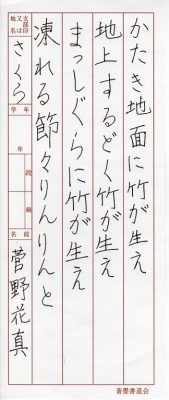 かたき地面に竹が生え
地上するどく竹が生え
まっしぐらに竹が生え
凍れる節々りんりんと
支部印
又は
地名
さくら
学年
年
段級
名前
菅野花真
蒼墨書道会